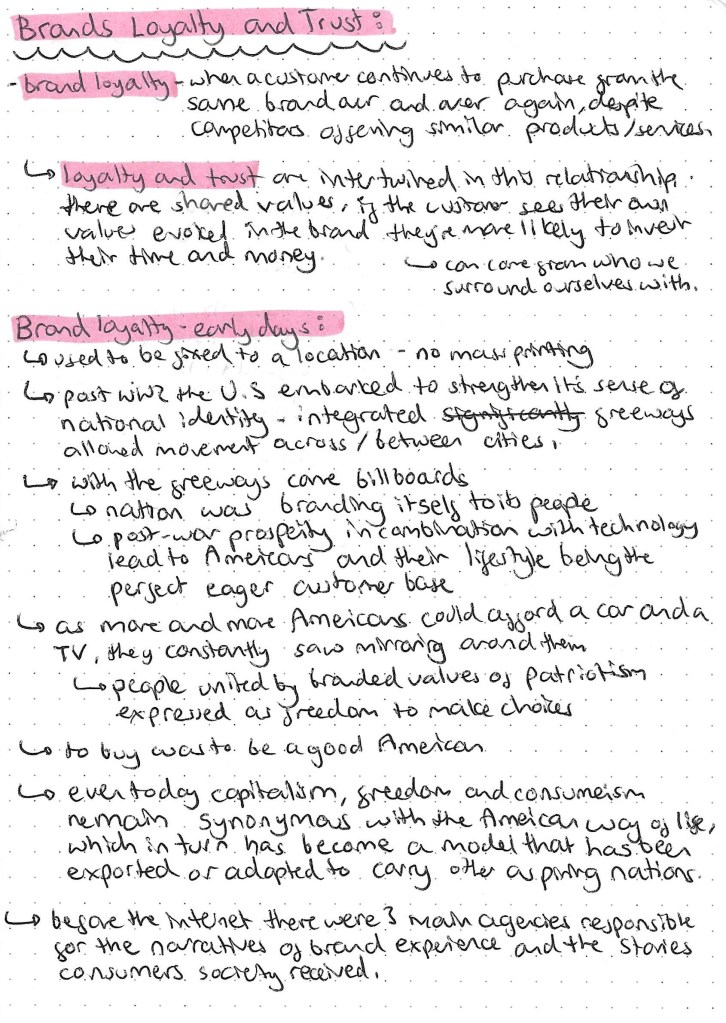 Brands Loyalty and Trust:
- brand loyalty - when a customer continues to purchase from the
same brand over and over again, despite
competitors offering similar products/services
↳ loyalty and trust are intertwined in this relationship.
there are shared values, if the customer sees their own
values evoked in the brand they're more likely to invest
their time and money.
↳ can come from who we
surround ourselves with.
Brand loyalty - early days:
↳ used to be fixed to a location - no mass printing
↳ post ww2 the U.S embarked to strengthen its sense of
national identity - integrated significantly freeways
allowed movement across / between cities.
↳ with the freeways came billboards
↳ nation was branding itself to its people
↳ post-war prosperity in combination with technology
lead to Americans and their lifestyle being the
perfect eager customer base
↳ as more and more Americans could afford a car and a
TV, they constantly saw mirroring around them
↳ people united by branded values of patriotism
expressed as freedom to make choices
↳ to buy was to be a good American
↳ even today capitalism, freedom and consumeism
remain synonymous with the American way of life,
which in turn has become a model that has been
exported or adapted to carry other aspiring nations.
↳ before the internet there were 3 main agencies responsible
for the narratives of brand experience and the stories
consumers society received.